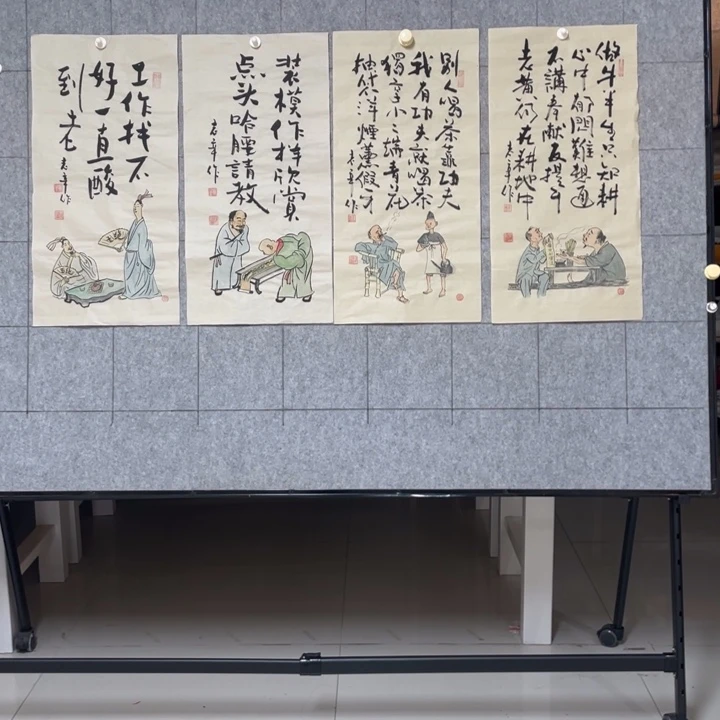 工作找不
好一直酸
到老
老辛作
装模作样欣赏
点头哈腰請教
老辛作
别人喝茶靠功夫
我有功夫就喝茶
獨享小二端青花
抽洋煙薰假牙
老辛作
做牛半生只知耕
心中郁悶難想通
不講奉献反提
老黄仍在耕地中
老辛作